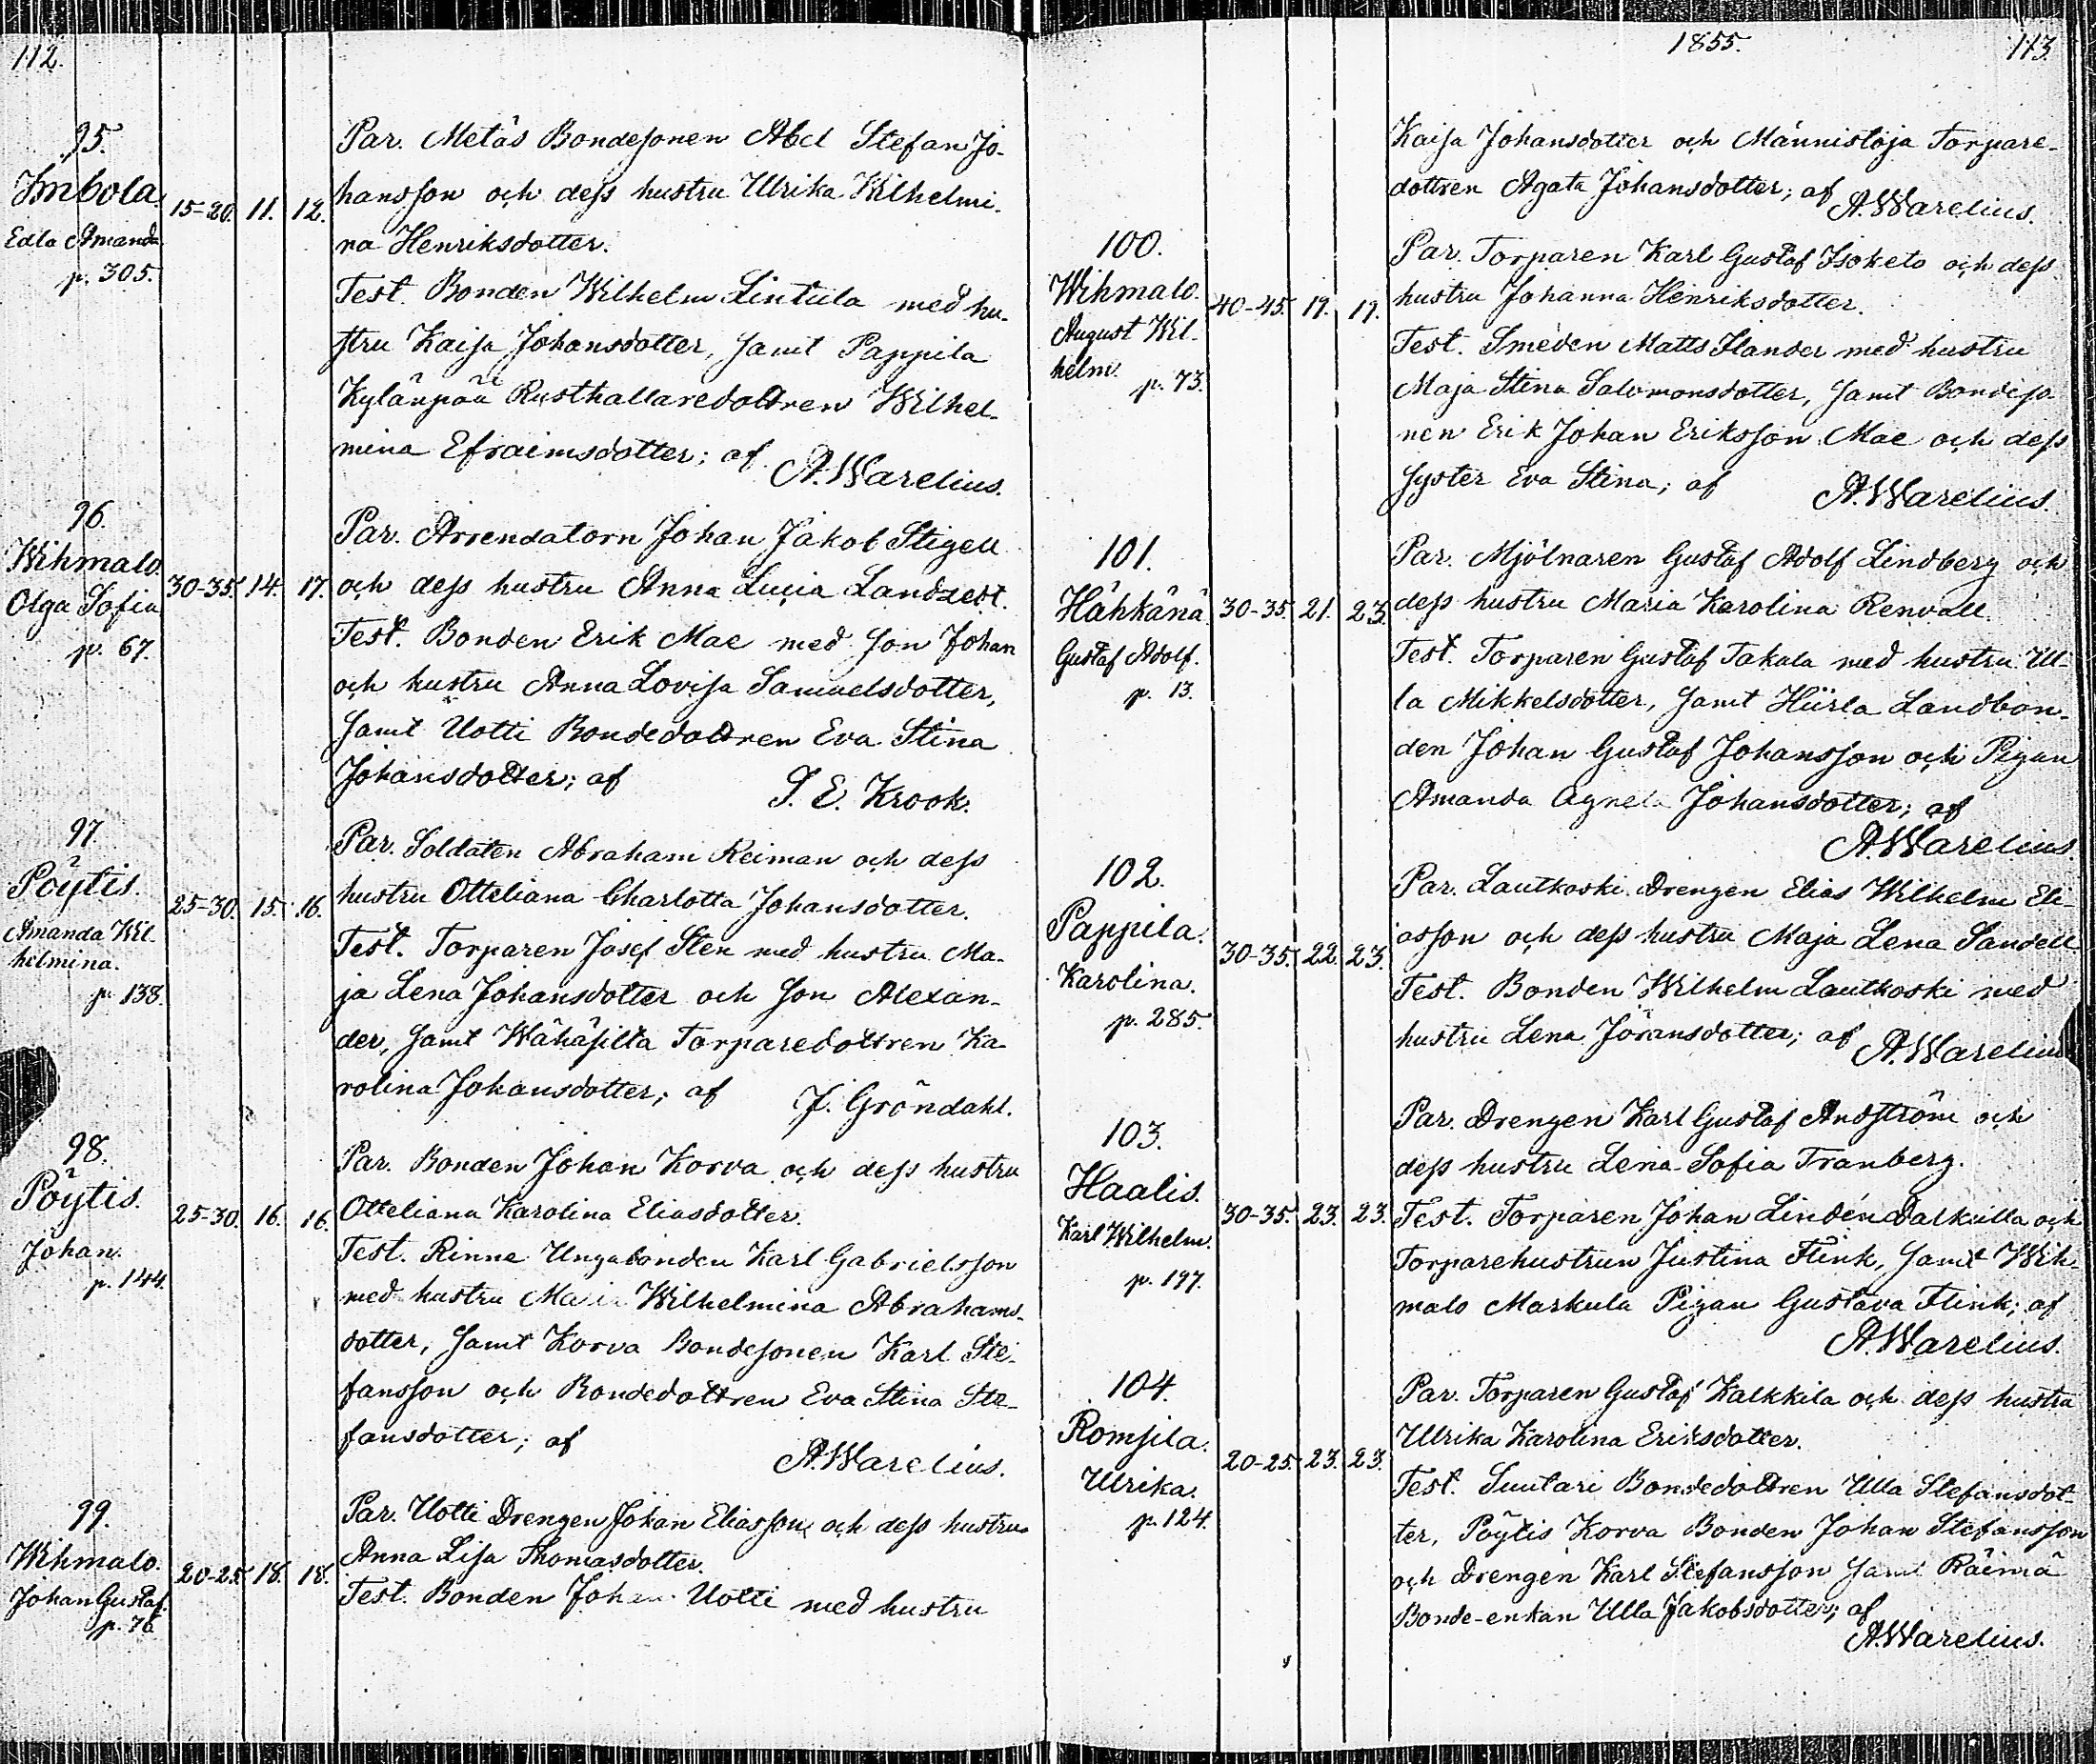 112.
95.
Imbola.
Edla Amanda
p. 305.
15-20. 11. 12.
Par. Metäs Bondesonen Abel Stefan Jo-
hansson och dess hustru Ulrika Wilhelmi-
na Henriksdotter.
Test. Bonden Wilhelm Lintula med hu-
stru Kaisa Johansdotter, samt Pappila
Kylänpää Rusthållaredottren Wilhel-
mina Efraimsdotter; af
A. Warelius.
96.
Wihmalo.
Olga Sofia
p. 67.
30-35. 14. 17.
Par. Arrendatorn Johan Jakob Stigell
och dess hustru Anna Lucia Landzett.
Test. Bonden Erik Mae med son Johan
och hustru Anna Lovisa Samuelsdotter,
samt Uotti Bondedottren Eva Stina
Johansdotter; af
S. E. Krook.
97.
Pöytis.
Amanda Wil-
helmina.
p. 138.
25-30. 15. 16.
Par. Soldaten Abraham Reiman och dess
hustru Otteliana Charlotta Johansdotter.
Test. Torparen Josef Sten med hustru Ma-
ja Lena Johansdotter och son Alexan-
der, samt Wähäsilta Torparedottren Ka-
rolina Johansdotter; af
J. Gröndahl.
98.
Pöytis.
Johan.
p. 144.
25-30. 16. 16.
Par. Bonden Johan Korva och dess hustru
Otteliana Karolina Eliasdotter.
Test. Rinne Ungabonden Karl Gabrielsson
med hustru Maria Wilhelmina Abrahams-
dotter, samt Korva Bondesonen Karl Ste-
fansson och Bondedottren Eva Stina Ste-
fansdotter; af
A. Warelius.
99.
Wihmalo.
Johan Gustaf.
p. 76
20-25. 18. 18.
Par. Uotti Drengen Johan Eliasson och dess hustru
Anna Lisa Thomasdotter.
Test. Bonden Johan Uotti med hustru
1855.
113.
Kaisa Johansdotter och Männistöja Torpare-
dottren Agata Johansdotter; af
A. Warelius.
100.
Wihmalo.
August Wil-
helm.
p. 73.
40-45. 19. 19.
Par. Torparen Karl Gustaf Isoketo och dess
hustru Johanna Henriksdotter.
Test. Smeden Matts Ilander med hustru
Maja Stina Salomonsdotter, samt Bondeso-
nen Erik Johan Eriksson Mae och dess
syster Eva Stina; af
A. Warelius.
101.
Hähkänä
Gustaf Adolf.
p. 13.
30-35. 21. 23.
Par. Mjölnaren Gustaf Adolf Lindberg och
dess hustru Maria Karolina Renvall.
Test. Torparen Gustaf Takala med hustru Ul-
la Mikkelsdotter, samt Hiirla Landbon-
den Johan Gustaf Johansson och Pigan
Amanda Agneta Johansdotter; af
A. Warelius.
102.
Pappila.
Karolina.
p. 285.
30-35. 22. 23.
Par. Lautkoski Drengen Elias Wilhelm Eli-
asson och dess hustru Maja Lena Sandell
Test. Bonden Wilhelm Lautkoski med
hustru Lena Göransdotter; af
A. Warelius
103.
Haalis.
Karl Wilhelm.
p. 197.
30-35. 23. 23.
Par. Drengen Karl Gustaf Andström och
dess hustru Lena Sofia Tranberg.
Test. Torparen Johan Lindén Dalkulla och
Torparehustrun Justina Flink, samt Wih-
malo Markula Pigan Gustava Flink; af
A. Warelius.
104.
Romsila.
Ulrika.
p. 124.
20-25. 23. 23.
Par. Torparen Gustaf Kalkkila och dess hustru
Ulrika Karolina Eriksdotter.
Test. Suutari Bondedottren Ulla Stefansdot-
ter, Pöytis Korva Bonden Johan Stefansson
och Drengen Karl Stefansson samt Räimä
Bonde-enkan Ulla Jakobsdotter; af
A. Warelius.